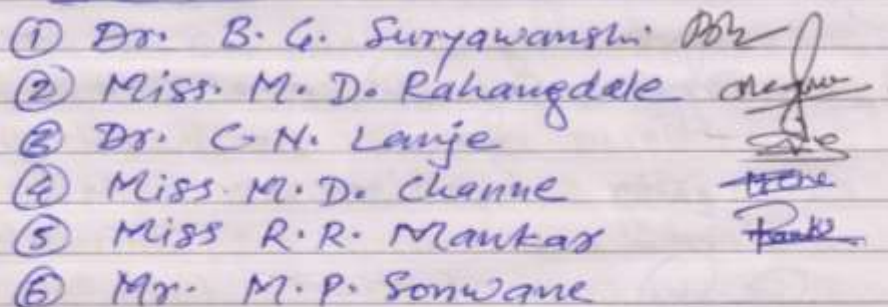 ① Dr. B. G. Suryawanshi
② Miss. M. D. Rahangdale
③ Dr. C. N. Lanje
④ Miss. M. D. Channe
⑤ Miss R. R. Mankar
⑥ Mr. M. P. Sonwane